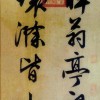 醉翁亭記
環滁皆山